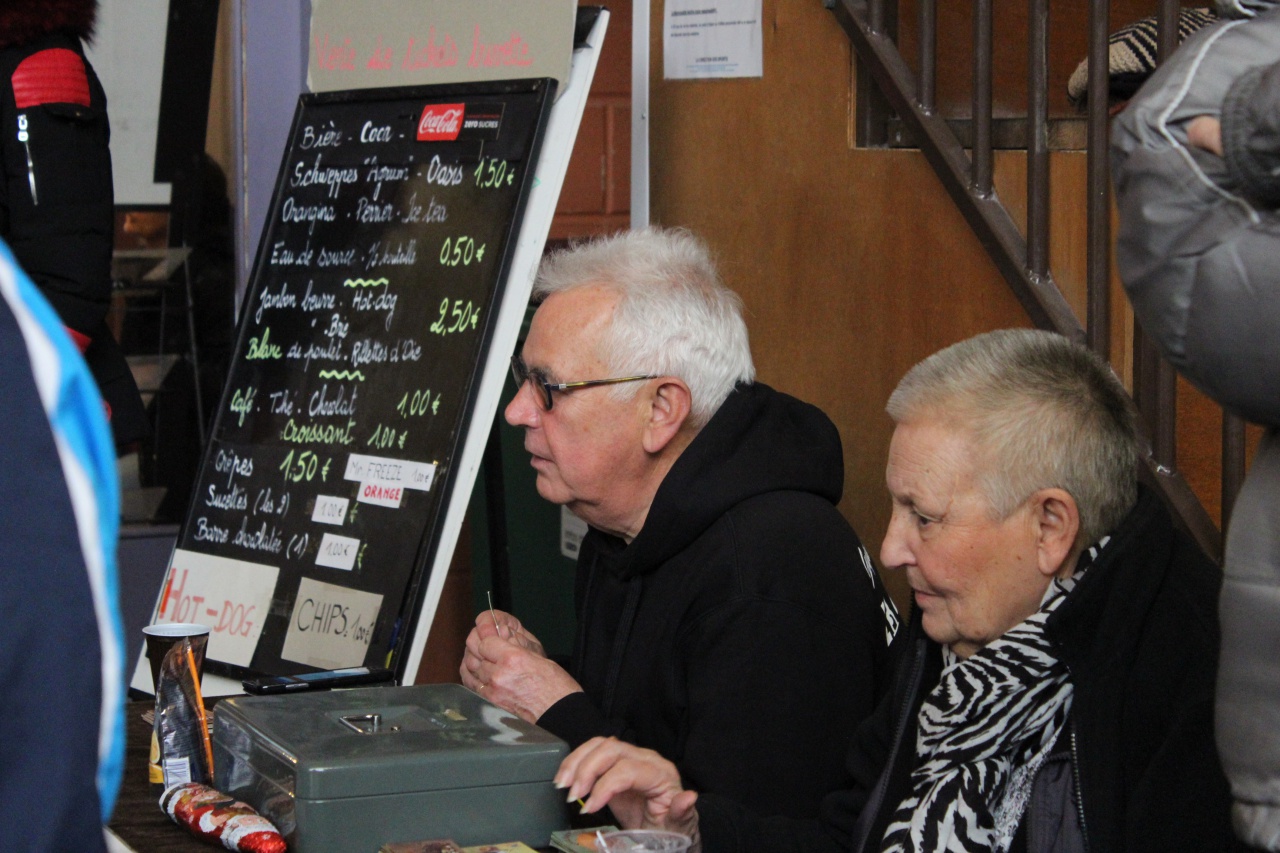 Vente de tickets buvette
Bière - Coca - Coca-Cola
ZERO SUCRES
Schweppes "Agrum" - Oasis 1,50€
Orangina - Perrier - Ice tea
Eau de source - ½ bouteille 0,50€
Jambon beurre - Hot-dog
Brie 2,50€
Blanc de poulet - Rillettes d'Oie
Café - Thé - Chocolat 1,00€
Croissant 1,00€
Crêpes 1.50€ Mr. FREEZE 1.00€
ORANGE
Sucettes (les 2) 1.00€ €
Barre chocolatée (1) 1.00€ €
HOT-DOG
CHIPS 1.00€